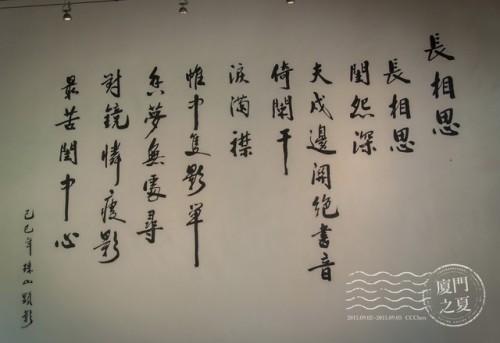 長相思
長相思
閨怨深
夫戍邊關絕書音
倚闌干
淚滿襟
帷中隻影單
魚夢無處尋
對鏡憐瘦影
最苦閨中心
己巳年珠山顯影
廈門
之夏
2011.09.02-2011.09.05 CCChen